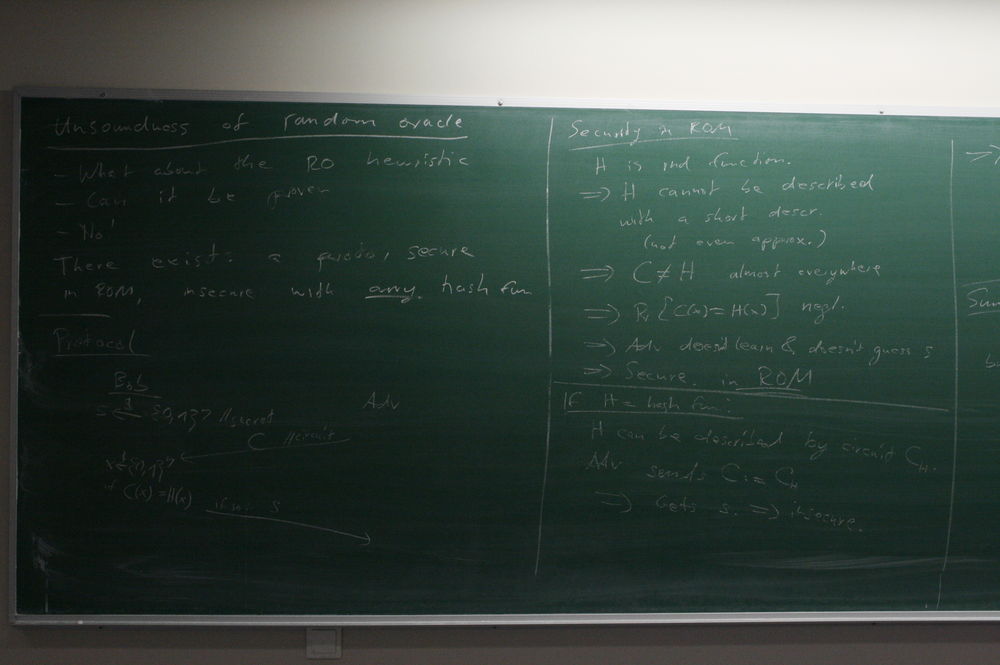 Unsoundness of random oracle
- What about the RO heuristic
- Can it be proven
- No!
There exist: a protocol, secure
in ROM, insecure with any hash fun
Protocol
Bob
Adv
s ← {0,1}^η secret
C circuit
x ← {0,1}^η
if C(x) = H(x)
if so: s
Security in ROM
H is rnd function.
⇒ H cannot be described
with a short descr.
(not even approx.)
⇒ C ≠ H almost everywhere
⇒ Pr[C(x) = H(x)] negl.
⇒ Adv doesn't learn & doesn't guess s
⇒ Secure in ROM
If H = hash fun.
H can be described by circuit C_H.
Adv sends C := C_H
⇒ Gets s. ⇒ insecure.
⇒